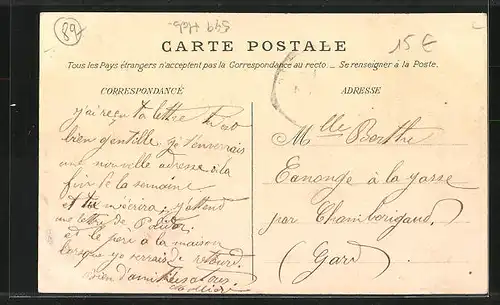 89
549 Heb.
15 €
CARTE POSTALE
Tous les Pays étrangers n'acceptent pas la Correspondance au recto. _ Se renseigner à la Poste.
CORRESPONDANCE
j'ai reçu ta lettre
bien gentille je t'enverrais
une nouvelle adresse à la
fin de la semaine
et tu m'écrira j'attend
une lettre de
et le père à la maison
lorsque je serrais de retourd
bien d'amitiés
ADRESSE
Mlle Berthe
Canonge à la
par Chamborigaud.
(Gard)